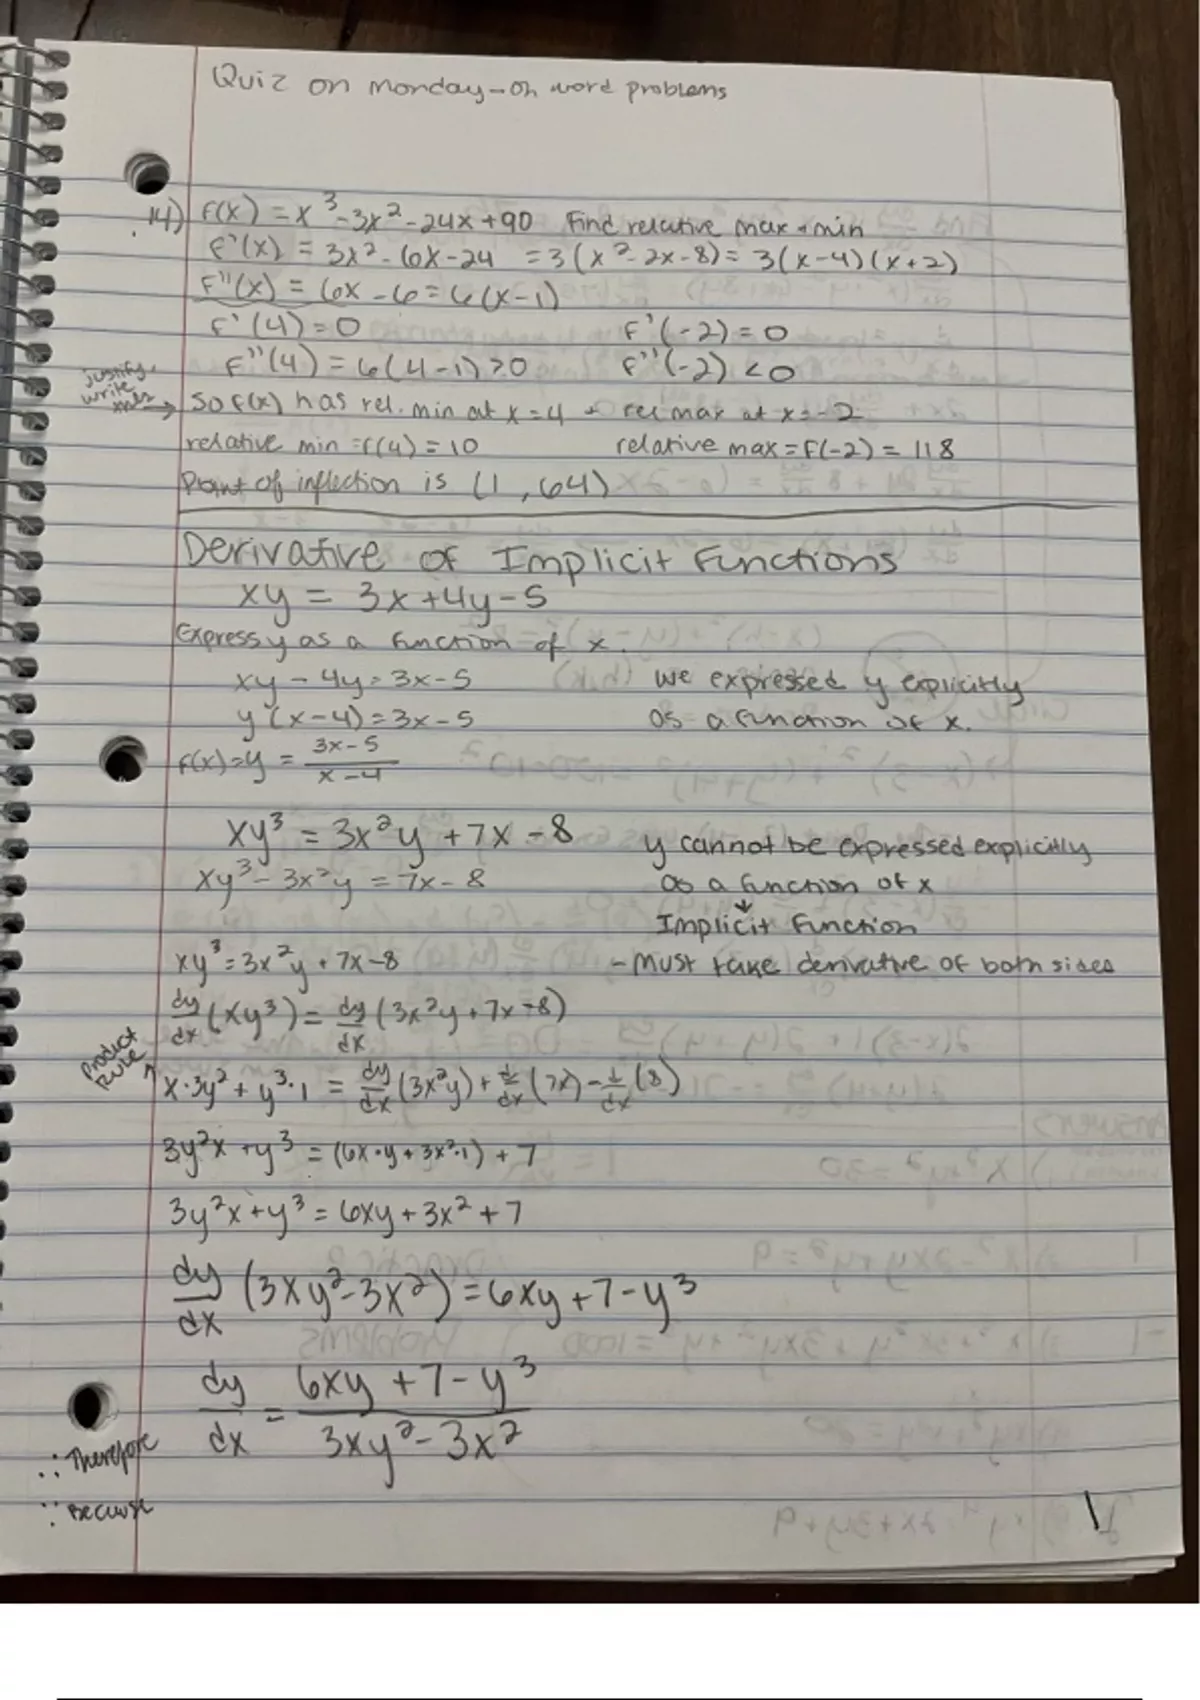 Quiz on monday - on word problems
14) f(x) = x³-3x²-24x+90 Find relative max + min
f'(x) = 3x²-6x-24 = 3(x²-2x-8) = 3(x-4)(x+2)
f"(x) = 6x-6 = 6(x-1)
f'(4) = 0 f'(-2) = 0
f"(4) = 6(4-1)>0 f"(-2) <0
justify, write
→ So f(x) has rel. min at x=4 + rel max at x=-2
relative min = f(4) = 10 relative max = f(-2) = 118
Point of inflection is (1,64)
Derivative of Implicit Functions
xy = 3x+4y-5
Express y as a function of x.
xy-4y=3x-5 we expressed y explicitly
y(x-4)=3x-5 as a function of x.
f(x)=y = 3x-5 / x-4
xy³ = 3x²y +7x-8 y cannot be expressed explicitly
xy³-3x²y = 7x-8 as a function of x
↓
Implicit Function
xy³=3x²y+7x-8 - Must take derivative of both sides
dy/dx (xy³) = dy/dx (3x²y+7x-8)
Product Rule ↑
x·3y²+y³·1 = dy/dx (3x²y) + d/dx (7x) - d/dx (8)
3y²x+y³ = (6x·y+3x²·1)+7
3y²x+y³ = 6xy+3x²+7
dy/dx (3xy²-3x²) = 6xy+7-y³
dy/dx = 6xy+7-y³ / 3xy²-3x²
∴ Therefore
∵ Because